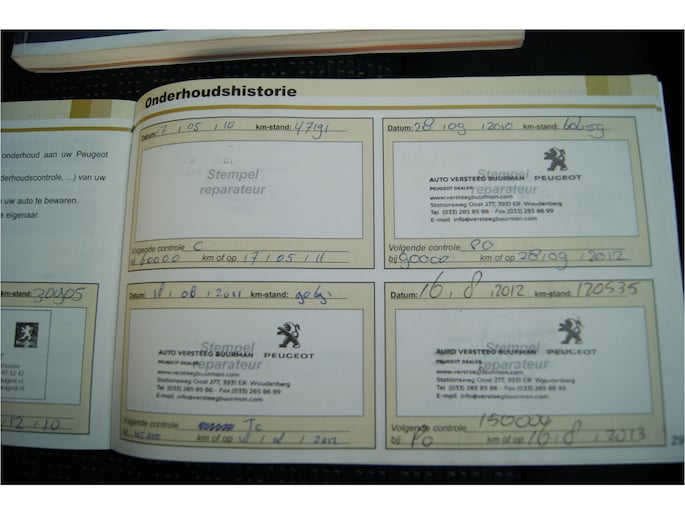 onderhoud aan uw Peugeot
derhoudscontrole, ...) van uw
uw auto te bewaren.
e eigenaar.
km-stand: 30905
47 52 43
12 10
Onderhoudshistorie
Datum: 17 05 10 km-stand: 47191
Stempel
reparateur
Volgende controle C
bij 60000 km of op 17 05 11
Datum: 28 09 2010 km-stand:
Stempel
reparateur
PEUGEOT
AUTO VERSTEEG BUURMAN
PEUGEOT DEALER
www.versteegbuurman.com
Stationsweg Oost 277, 3931 ER Woudenberg
Tel (033) 285 85 86 - Fax (033) 285 86 99
E-mail info@versteegbuurman.com
Volgende controle PO
bij 90000 km of op 28 09 2012
Datum: 18 08 2011 km-stand:
Stempel
reparateur
PEUGEOT
AUTO VERSTEEG BUURMAN
PEUGEOT DEALER
www.versteegbuurman.com
Stationsweg Oost 277, 3931 ER Woudenberg
Tel (033) 285 85 86 - Fax (033) 285 86 99
E-mail info@versteegbuurman.com
Volgende controle Tc
bij 105.000 km of op 18 08 2012
Datum: 16 8 2012 km-stand: 120535
Stempel
reparateur
PEUGEOT
AUTO VERSTEEG BUURMAN
PEUGEOT DEALER
www.versteegbuurman.com
Stationsweg Oost 277, 3931 ER Woudenberg
Tel (033) 285 85 86 - Fax (033) 285 86 99
E-mail info@versteegbuurman.com
Volgende controle 150000
bij PO km of op 16 8 2013
29